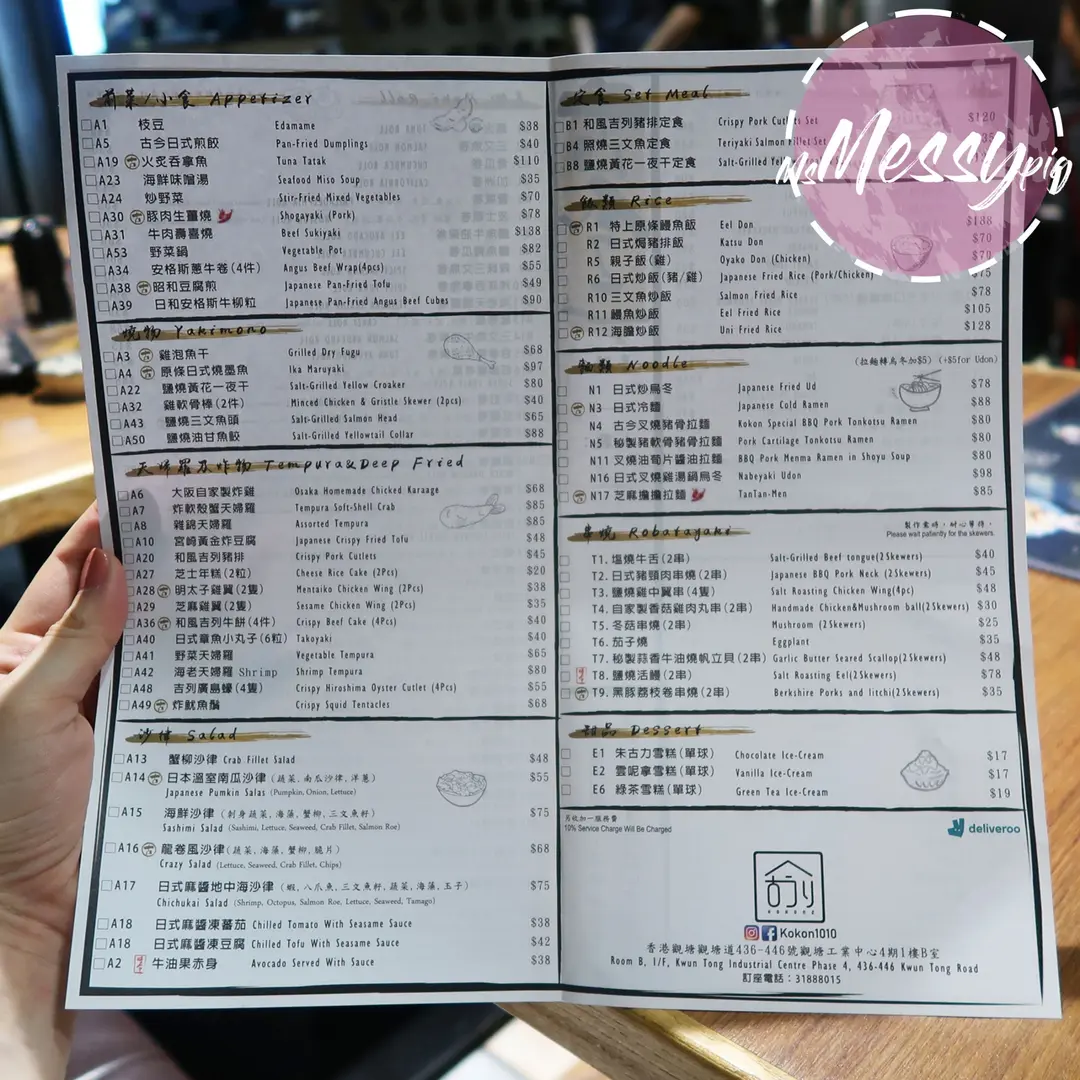 前菜/小食 Appetizer
A1 枝豆 Edamame $38
A5 古今日式煎餃 Pan-Fried Dumplings $40
A19 火炙吞拿魚 Tuna Tatak $110
A23 海鮮味噌湯 Seafood Miso Soup $35
A24 炒野菜 Stir-Fried Mixed Vegetables $70
A30 豚肉生薑燒 Shogayaki (Pork) $78
A31 牛肉壽喜燒 Beef Sukiyaki $138
A53 野菜鍋 Vegetable Pot $82
A34 安格斯蔥牛卷(4件) Angus Beef Wrap(4pcs) $55
A38 昭和豆腐煎 Japanese Pan-Fried Tofu $49
A39 日和安格斯牛柳粒 Japanese Pan-Fried Angus Beef Cubes $90
燒物 Yakimono
A3 雞泡魚干 Grilled Dry Fugu $68
A4 原條日式燒墨魚 Ika Maruyaki $97
A22 鹽燒黃花一夜干 Salt-Grilled Yellow Croaker $80
A32 雞軟骨棒(2件) Minced Chicken & Gristle Skewer (2pcs) $40
A43 鹽燒三文魚頭 Salt-Grilled Salmon Head $65
A50 鹽燒油甘魚鮫 Salt-Grilled Yellowtail Collar $88
天婦羅及炸物 Tempura&Deep Fried
A6 大阪自家製炸雞 Osaka Homemade Chicked Karaage $68
A7 炸軟殼蟹天婦羅 Tempura Soft-Shell Crab $85
A8 雜錦天婦羅 Assorted Tempura $85
A10 宮崎黃金炸豆腐 Japanese Crispy Fried Tofu $48
A20 和風吉列豬排 Crispy Pork Cutlets $45
A27 芝士年糕(2粒) Cheese Rice Cake (2Pcs) $20
A28 明太子雞翼(2隻) Mentaiko Chicken Wing (2Pcs) $38
A29 芝麻雞翼(2隻) Sesame Chicken Wing (2Pcs) $35
A36 和風吉列牛餅(4件) Crispy Beef Cake (4Pcs) $40
A40 日式章魚小丸子(6粒) Takoyaki $40
A41 野菜天婦羅 Vegetable Tempura $65
A42 海老天婦羅 Shrimp Shrimp Tempura $80
A48 吉列廣島蠔(4隻) Crispy Hiroshima Oyster Cutlet (4Pcs) $55
A49 炸魷魚鬚 Crispy Squid Tentacles $68
沙律 Salad
A13 蟹柳沙律 Crab Fillet Salad $48
A14 日本溫室南瓜沙律(蔬菜,南瓜沙律,洋蔥) $55
Japanese Pumkin Salas (Pumpkin, Onion, Lettuce)
A15 海鮮沙律 (刺身蔬菜,海藻,蟹柳,三文魚籽) $75
Sashimi Salad (Sashimi, Lettuce, Seaweed, Crab Fillet, Salmon Roe)
A16 龍卷風沙律(蔬菜,海藻,蟹柳,脆片) $68
Crazy Salad (Lettuce, Seaweed, Crab Fillet, Chips)
A17 日式麻醬地中海沙律 (蝦,八爪魚,三文魚籽,蔬菜,海藻,玉子) $75
Chichukai Salad (Shrimp, Octopus, Salmon Roe, Lettuce, Seaweed, Tamago)
A18 日式麻醬凍蕃茄 Chilled Tomato With Seasame Sauce $38
A18 日式麻醬凍豆腐 Chilled Tofu With Seasame Sauce $42
A2 牛油果赤身 Avocado Served With Sauce $38
定食 Set Meal
B1 和風吉列豬排定食 Crispy Pork Cutlet Set $120
B4 照燒三文魚定食 Teriyaki Salmon Fillet Set
B8 鹽燒黃花一夜干定食 Salt-Grilled
飯類 Rice
R1 特上原條鰻魚飯 Eel Don $138
R2 日式焗豬排飯 Katsu Don $70
R5 親子飯(雞) Oyako Don (Chicken) $70
R6 日式炒飯(豬/雞) Japanese Fried Rice (Pork/Chicken) $75
R10 三文魚炒飯 Salmon Fried Rice $78
R11 鰻魚炒飯 Eel Fried Rice $105
R12 海膽炒飯 Uni Fried Rice $128
麵類 Noodle (拉麵轉烏冬加$5) (+$5for Udon)
N1 日式炒烏冬 Japanese Fried Ud $78
N3 日式冷麵 Japanese Cold Ramen $88
N4 古今叉燒豬骨拉麵 Kokon Special BBQ Pork Tonkotsu Ramen $80
N5 秘製豬軟骨豬骨拉麵 Pork Cartilage Tonkotsu Ramen $80
N11 叉燒油荀片醬油拉麵 BBQ Pork Menma Ramen in Shoyu Soup $80
N16 日式叉燒雞湯鍋烏冬 Nabeyaki Udon $98
N17 芝麻擔擔拉麵 TanTan-Men $85
串燒 Robatayaki 製作需時,耐心等待。
Please wait patiently for the skewers.
T1. 塩燒牛舌(2串) Salt-Grilled Beef tongue(2Skewers) $40
T2. 日式豬頸肉串燒(2串) Japanese BBQ Pork Neck (2Skewers) $45
T3. 鹽燒雞中翼串(4串) Salt Roasting Chicken Wing(4pc) $48
T4. 自家製香菇雞肉丸串(2串) Handmade Chicken&Mushroom ball(2Skewers) $30
T5. 冬菇串燒(2串) Mushroom (2Skewers) $25
T6. 茄子燒 Eggplant $35
T7. 秘製蒜香牛油燒帆立貝(2串) Garlic Butter Seared Scallop(2Skewers) $48
T8. 鹽燒活鰻(2串) Salt Roasting Eel(2Skewers) $78
T9. 黑豚荔枝卷串燒(2串) Berkshire Porks and litchi(2Skewers) $35
甜品 Dessert
E1 朱古力雪糕(單球) Chocolate Ice-Cream $17
E2 雲呢拿雪糕(單球) Vanilla Ice-Cream $17
E6 綠茶雪糕(單球) Green Tea Ice-Cream $19
另收加一服務費
10% Service Charge Will Be Charged
deliveroo
Kokon1010
香港觀塘觀塘道436-446號觀塘工業中心4期1樓B室
Room B, 1/F, Kwun Tong Industrial Centre Phase 4, 436-446 Kwun Tong Road
訂座電話：31888015
MsMessypig